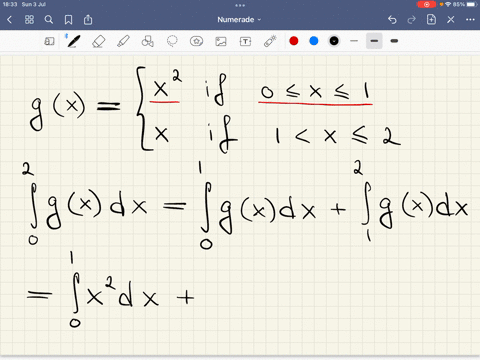 18:33 Sun 3 Jul
85%
Numerade
g(x) = { x² if 0 ≤ x ≤ 1
x if 1 < x ≤ 2
∫₀² g(x) dx = ∫₀¹ g(x) dx + ∫₁² g(x) dx
= ∫₀¹ x² dx +